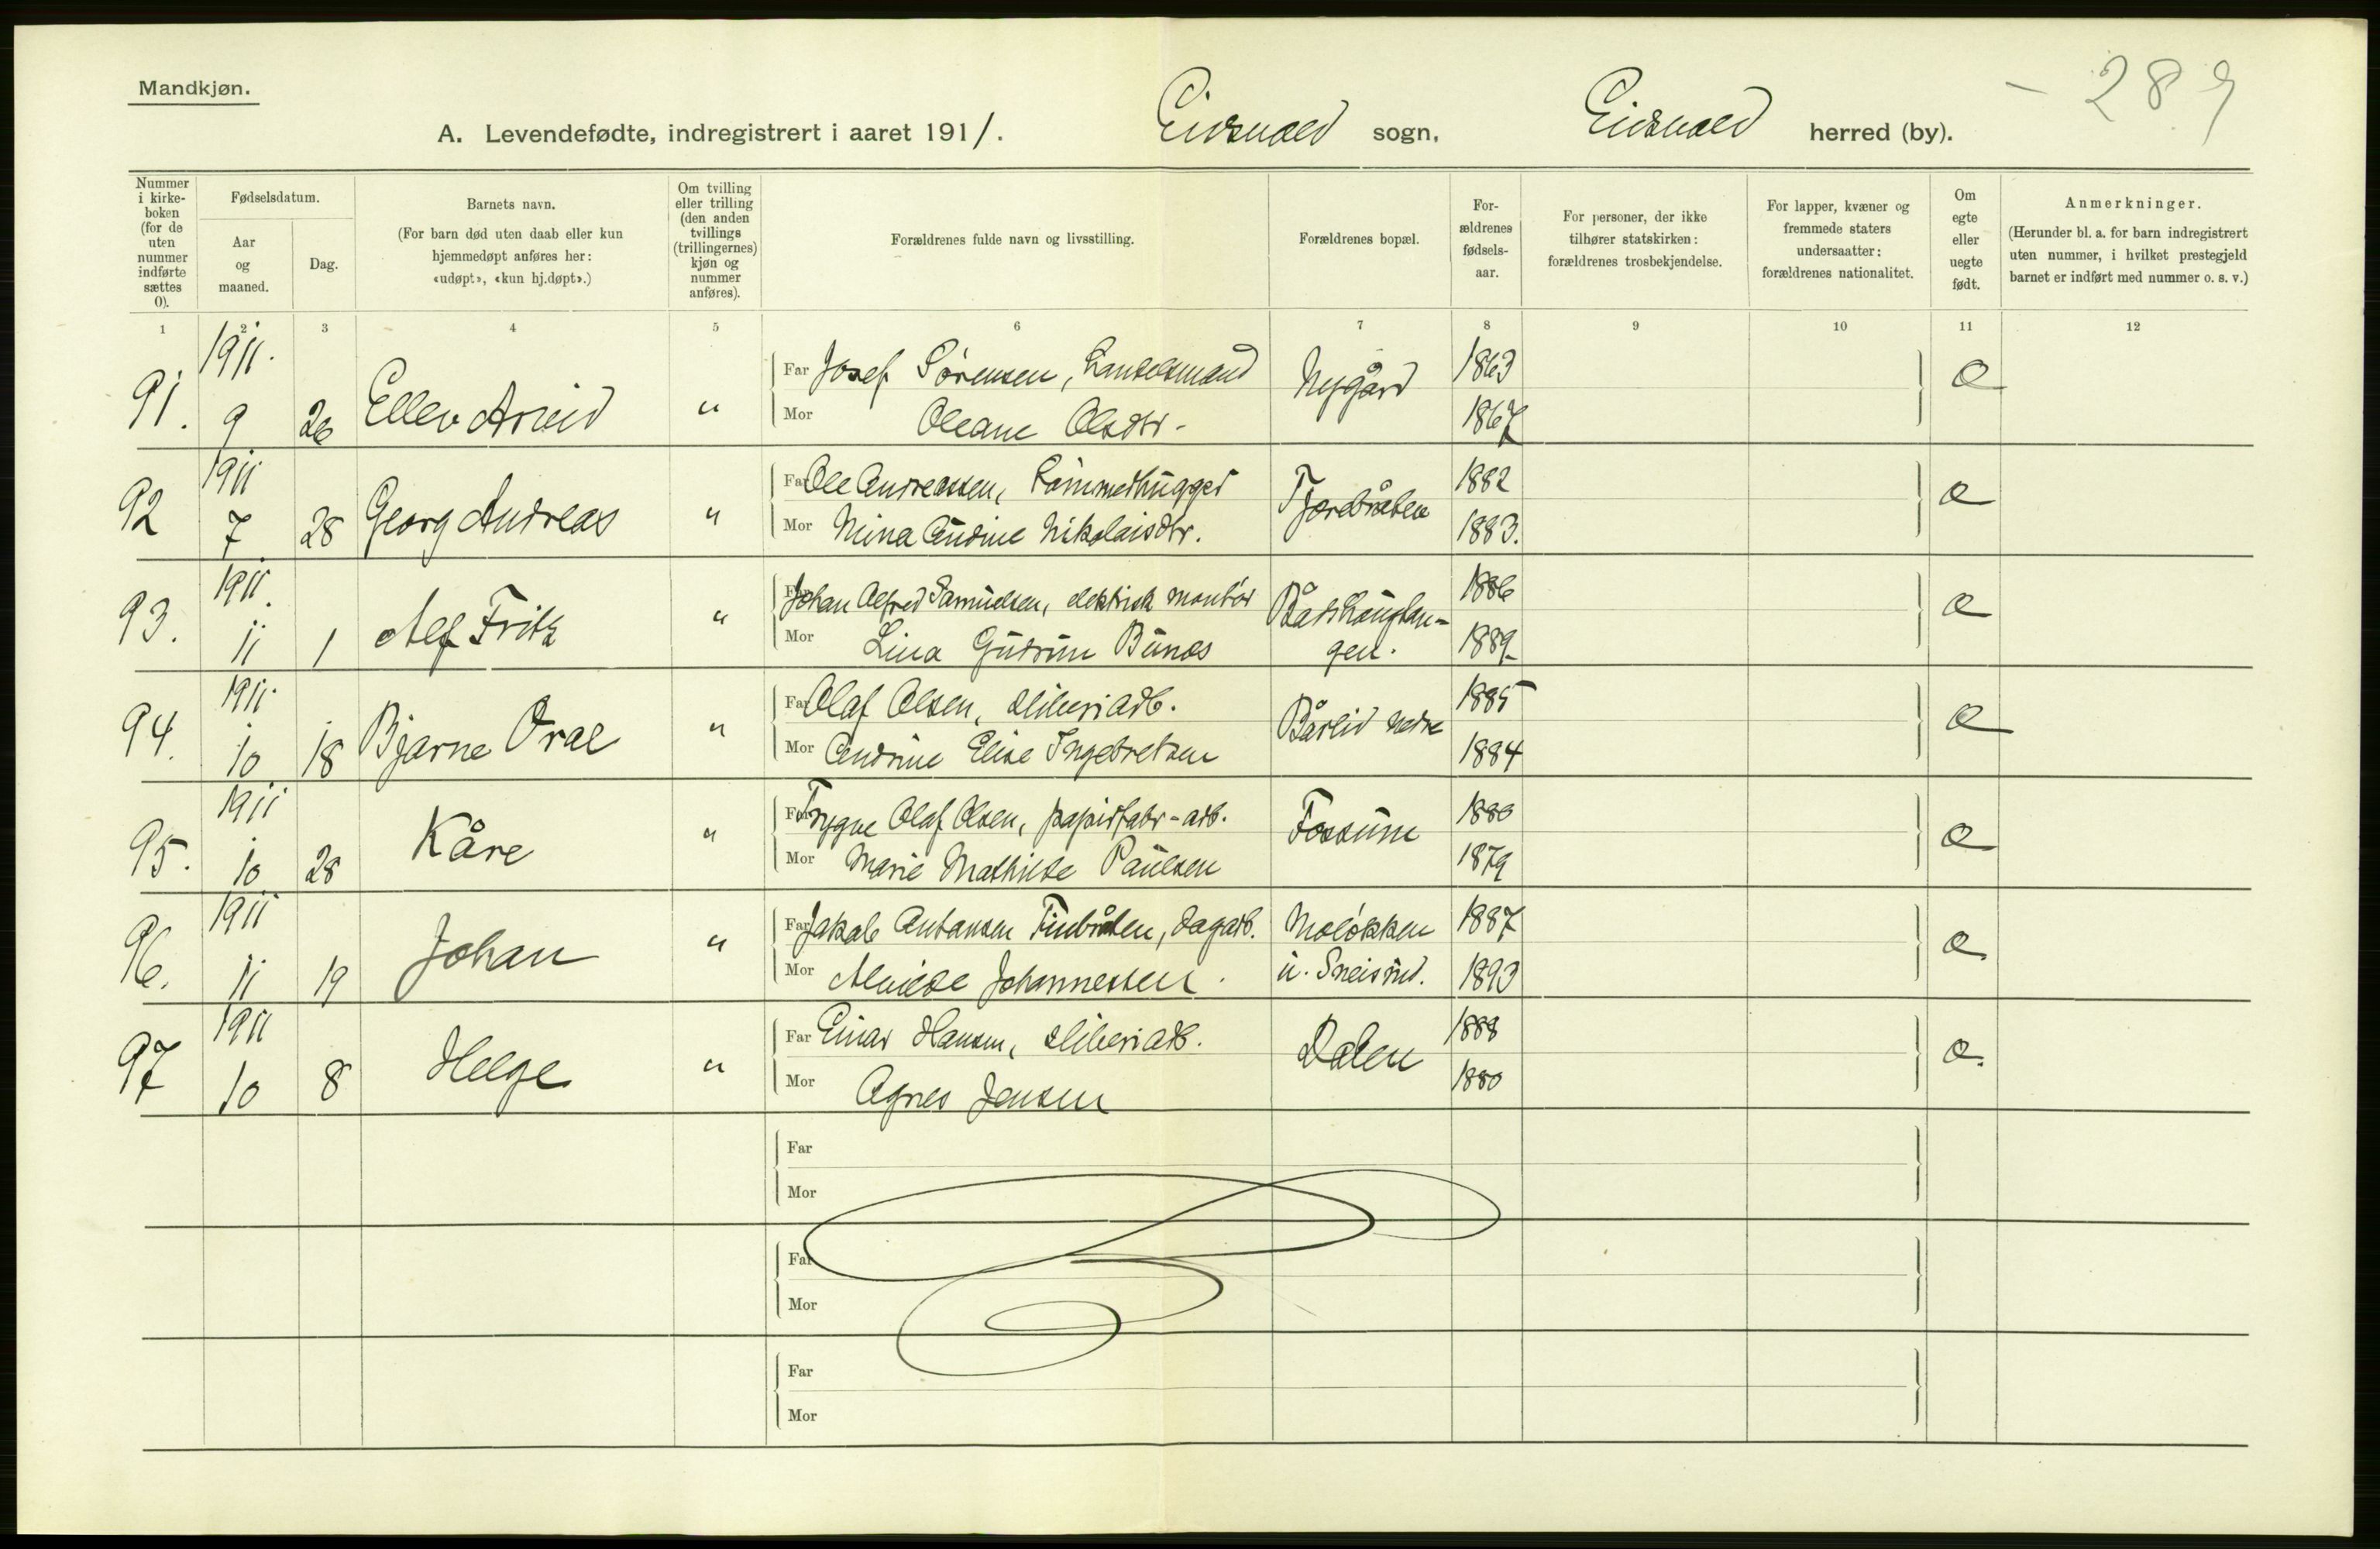 - 289
Mandkjøn.
A. Levendefødte, indregistrert i aaret 1911. Eidsvold sogn, Eidsvold herred (by).
Nummer i kirke-boken (for de uten nummer indførte sættes 0).
Fødselsdatum.
Aar og maaned.
Dag.
Barnets navn.
(For barn død uten daab eller kun hjemmedøpt anføres her: «udøpt», «kun hj.døpt».)
Om tvilling eller trilling (den anden tvillings (trillingernes) kjøn og nummer anføres).
Forældrenes fulde navn og livsstilling.
Forældrenes bopæl.
For-ældrenes fødsels-aar.
For personer, der ikke tilhører statskirken: forældrenes trosbekjendelse.
For lapper, kvæner og fremmede staters undersaatter: forældrenes nationalitet.
Om egte eller uegte født.
Anmerkninger.
(Herunder bl. a. for barn indregistrert uten nummer, i hvilket prestegjeld barnet er indført med nummer o. s. v.)
1 2 3 4 5 6 7 8 9 10 11 12
91. 1911. 9 26 Ellev Arvid " Far Josef Sørensen, handelsmand Nygård 1863 e
Mor Oleane Olsdtr. 1867
92 1911 7 28 Georg Andreas " Far Ole Andreassen, tømmerhugger Tjærebråten 1882 e
Mor Mina Andine Nikolaisdtr. 1883.
93. 1911. 11 1 Alf Fritz " Far Johan Alfred Samuelsen, elektrisk montør 1886 e
Mor Lina Gudrun Bunæs gen. 1889
94. 1911. 10 18 Bjarne Oral " Far Olaf Olsen, sliperiarb. Bårlid nedre 1885 e
Mor Andrine Elise Ingebretsen 1884
95. 1911 10 28 Kåre " Far Trygve Olaf Olsen, papirfabr-arb. Fossum 1880 e
Mor Marie Mathilde Paulsen 1879
96. 1911 11 19 Johan " Far Jakob Antonsen Finbråten, dagarb. Moløkken 1887 e
Mor Alvilde Johannessen. u. Sneisrud. 1893
97 1911 10 8 Helge " Far Einar Hansen, sliperiarb. Dalen 1888 e.
Mor Agnes Jensen 1880
Far
Mor
Far
Mor
Far
Mor